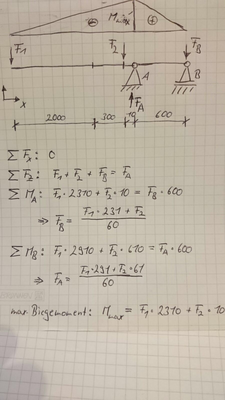 M max
⊖ ⊕
F1 F2 FB
A B
FA
x
2000 300 10 600
ΣFx: 0
ΣFz: F1 + F2 + FB = FA
ΣMA: F1·2310 + F2·10 = FB·600
⇒ FB = (F1·231 + F2)/60
ΣMB: F1·2910 + F2·610 = FA·600
⇒ FA = (F1·291 + F2·61)/60
max Biegemoment: Mmax = F1·2310 + F2·10